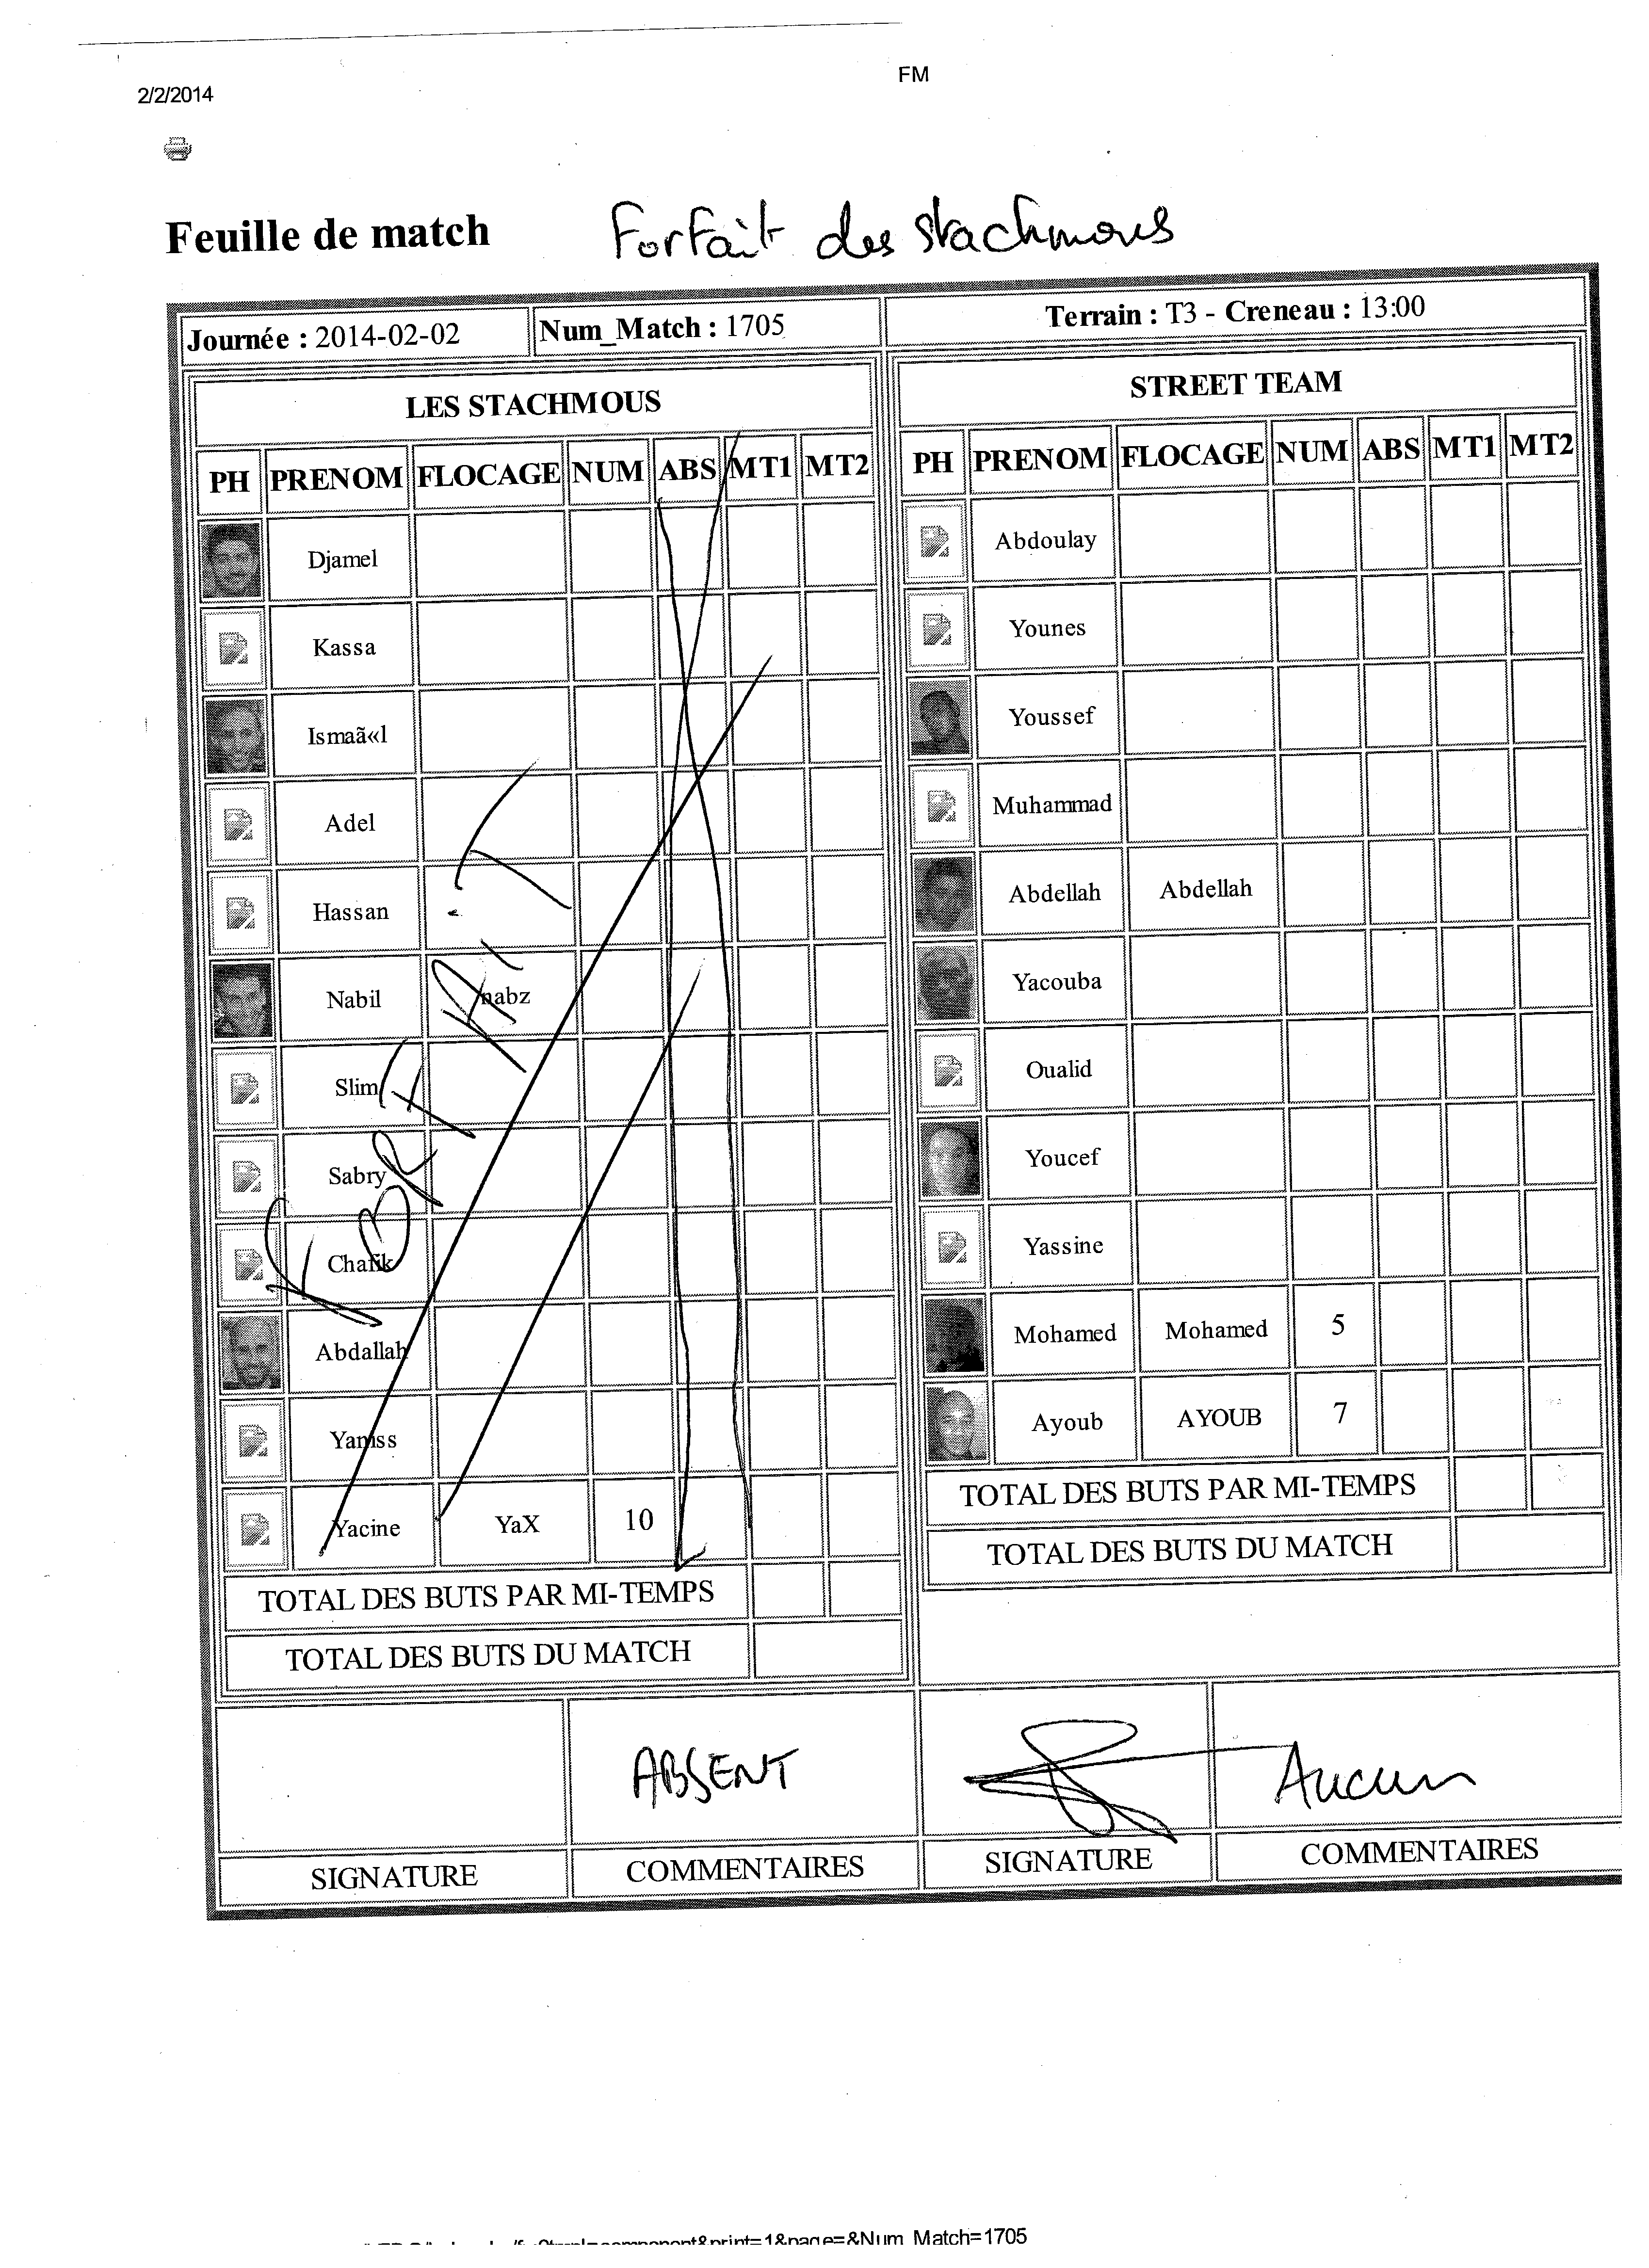 FM
2/2/2014
Feuille de match Forfait des stachmous
Journée : 2014-02-02 Num_Match : 1705 Terrain : T3 - Creneau : 13:00
LES STACHMOUS
PH PRENOM FLOCAGE NUM ABS MT1 MT2
Djamel
Kassa
Ismaã«l
Adel
Hassan
Nabil nabz
Slim
Sabry
Chafik
Abdallah
Yaniss
Yacine YaX 10
FORFAIT
TOTAL DES BUTS PAR MI-TEMPS
TOTAL DES BUTS DU MATCH
STREET TEAM
PH PRENOM FLOCAGE NUM ABS MT1 MT2
Abdoulay
Younes
Youssef
Muhammad
Abdellah Abdellah
Yacouba
Oualid
Youcef
Yassine
Mohamed Mohamed 5
Ayoub AYOUB 7
TOTAL DES BUTS PAR MI-TEMPS
TOTAL DES BUTS DU MATCH
ABSENT Aucun
SIGNATURE COMMENTAIRES SIGNATURE COMMENTAIRES
component&print=1&page=&Num_Match=1705